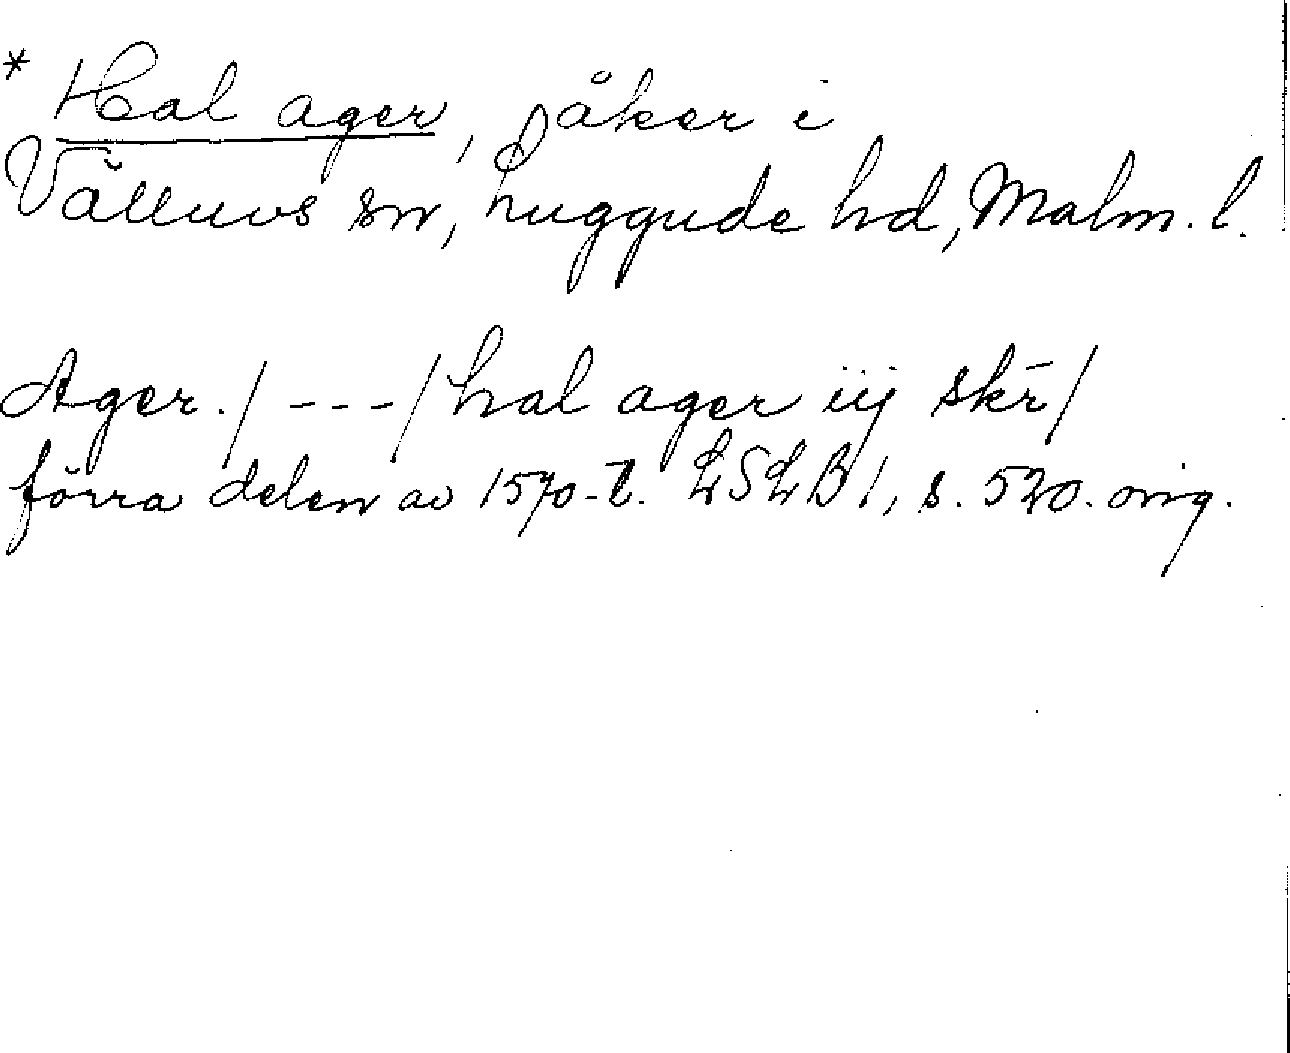 * Hal ager, åker i
Välluvs sn, Luggude hd, Malm. l.
Ager. / --- / hal ager iij skr̄ /
förra delen av 1570-t. LSLB 1, s. 520. orig.